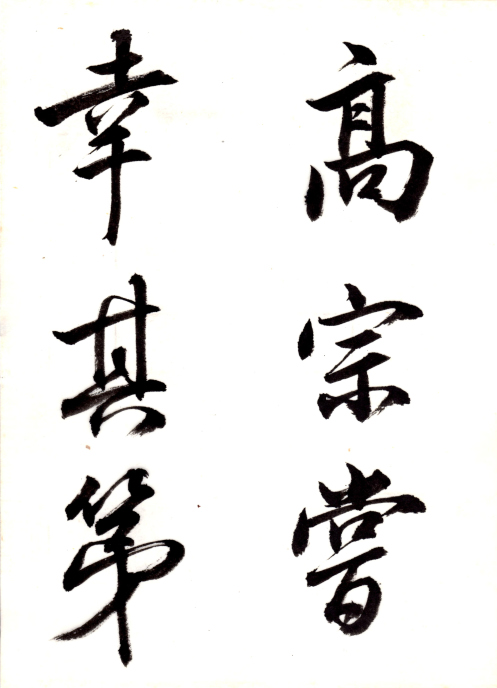 高宗嘗
幸其第